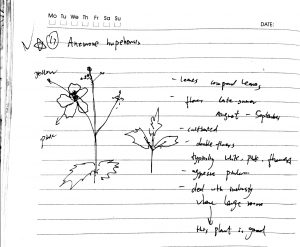 Mo Tu We Th Fr Sa Su
DATE:
Anemone hupehensis
yellow
pink
- leaves compound leaves
- flower late summer
August - September
- cultivated
- double flowers
typically white, pink,
- aggressive
- deal with
where large
this plant is good